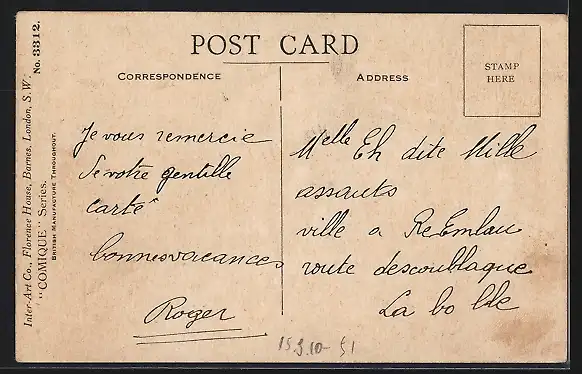 POST CARD
CORRESPONDENCE
ADDRESS
STAMP
HERE
Je vous remercie
de votre gentille
carte
bonnes vacances
Roger
Melle Eh dite Mille
assauts
ville a
route
La bo
15.9.10-51
Inter-Art Co., Florence House, Barnes, London, S.W.
"COMIQUE" Series. No. 3312.
BRITISH MANUFACTURE THROUGHOUT.